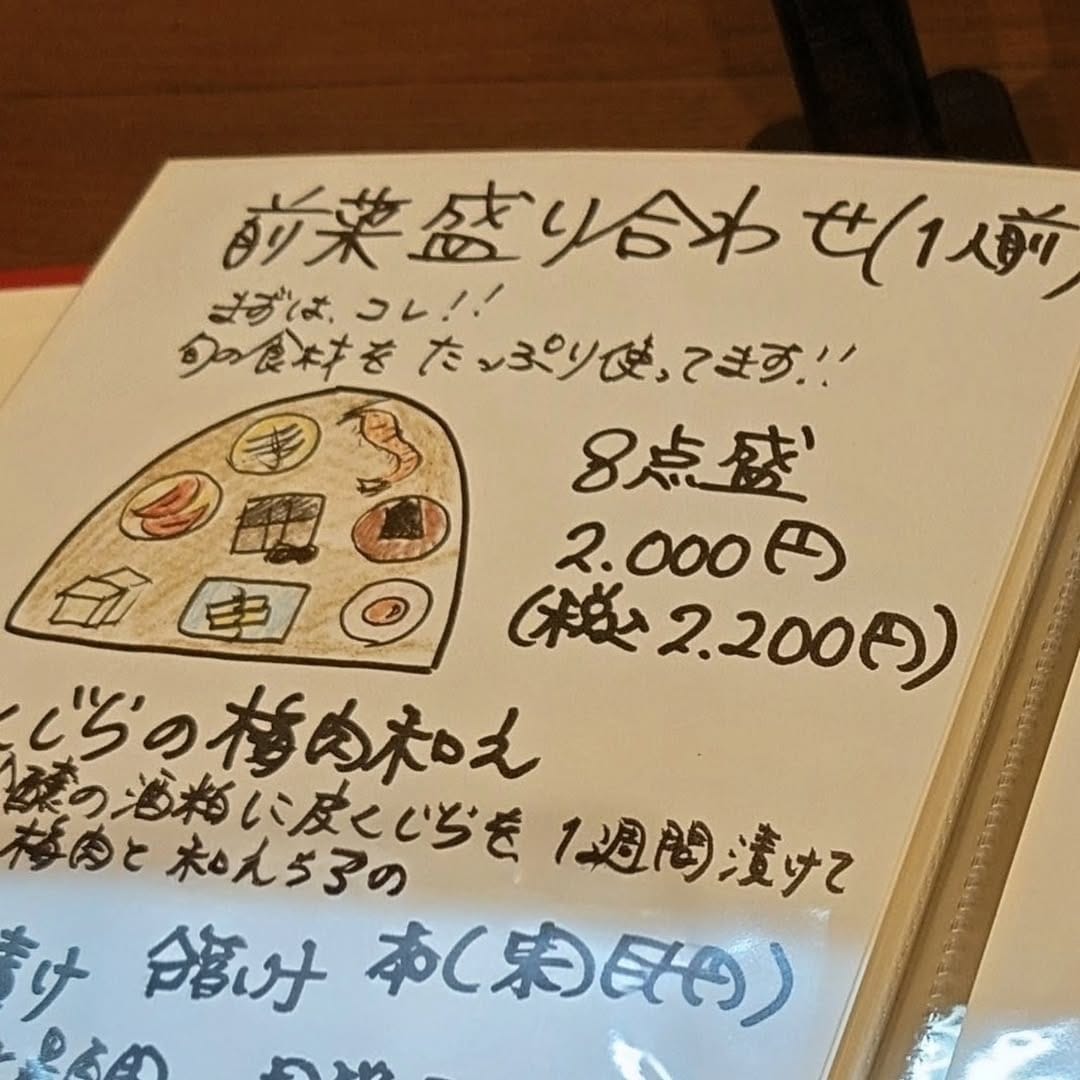 前菜盛り合わせ(1人前)
まずは、コレ!!
旬の食材をたっぷり使ってます!!
8点盛
2.000円
(税込2.200円)
くじらの梅肉和え
醸の酒粕に皮くじらを1週間漬けて
梅肉と和えちるの
漬け